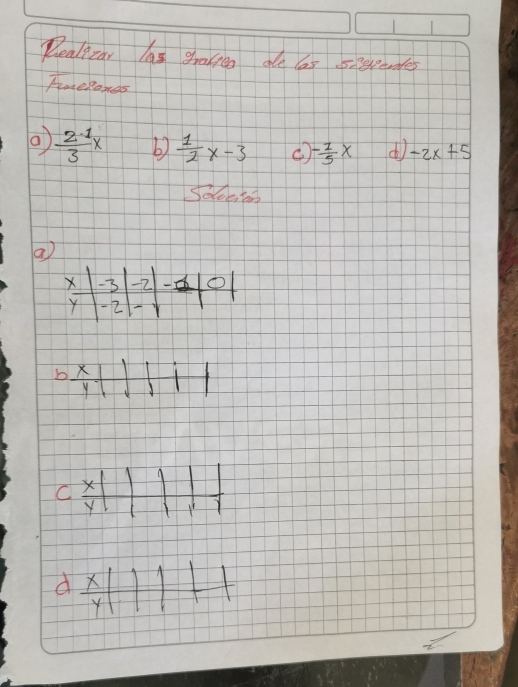 Realizar las grafica de las siguientes
Funciones
a) 2·1/3 x b) 1/2 x - 3 c) -1/5 x d) -2x + 5
Solución
a)
x | -3 | -2 | - | 0 |
y | -2 | - |
b x
y
c x
y
d x
y